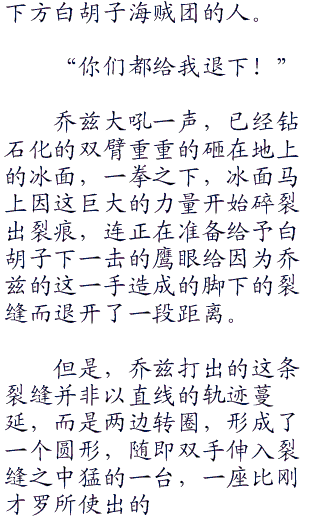 下方白胡子海贼团的人。
“你们都给我退下！”
乔兹大吼一声，已经钻
石化的双臂重重的砸在地上
的冰面，一拳之下，冰面马
上因这巨大的力量开始碎裂
出裂痕，连正在准备给予白
胡子下一击的鹰眼给因为乔
兹的这一手造成的脚下的裂
缝而退开了一段距离。
但是，乔兹打出的这条
裂缝并非以直线的轨迹蔓
延，而是两边转圈，形成了
一个圆形，随即双手伸入裂
缝之中猛的一台，一座比刚
才罗所使出的